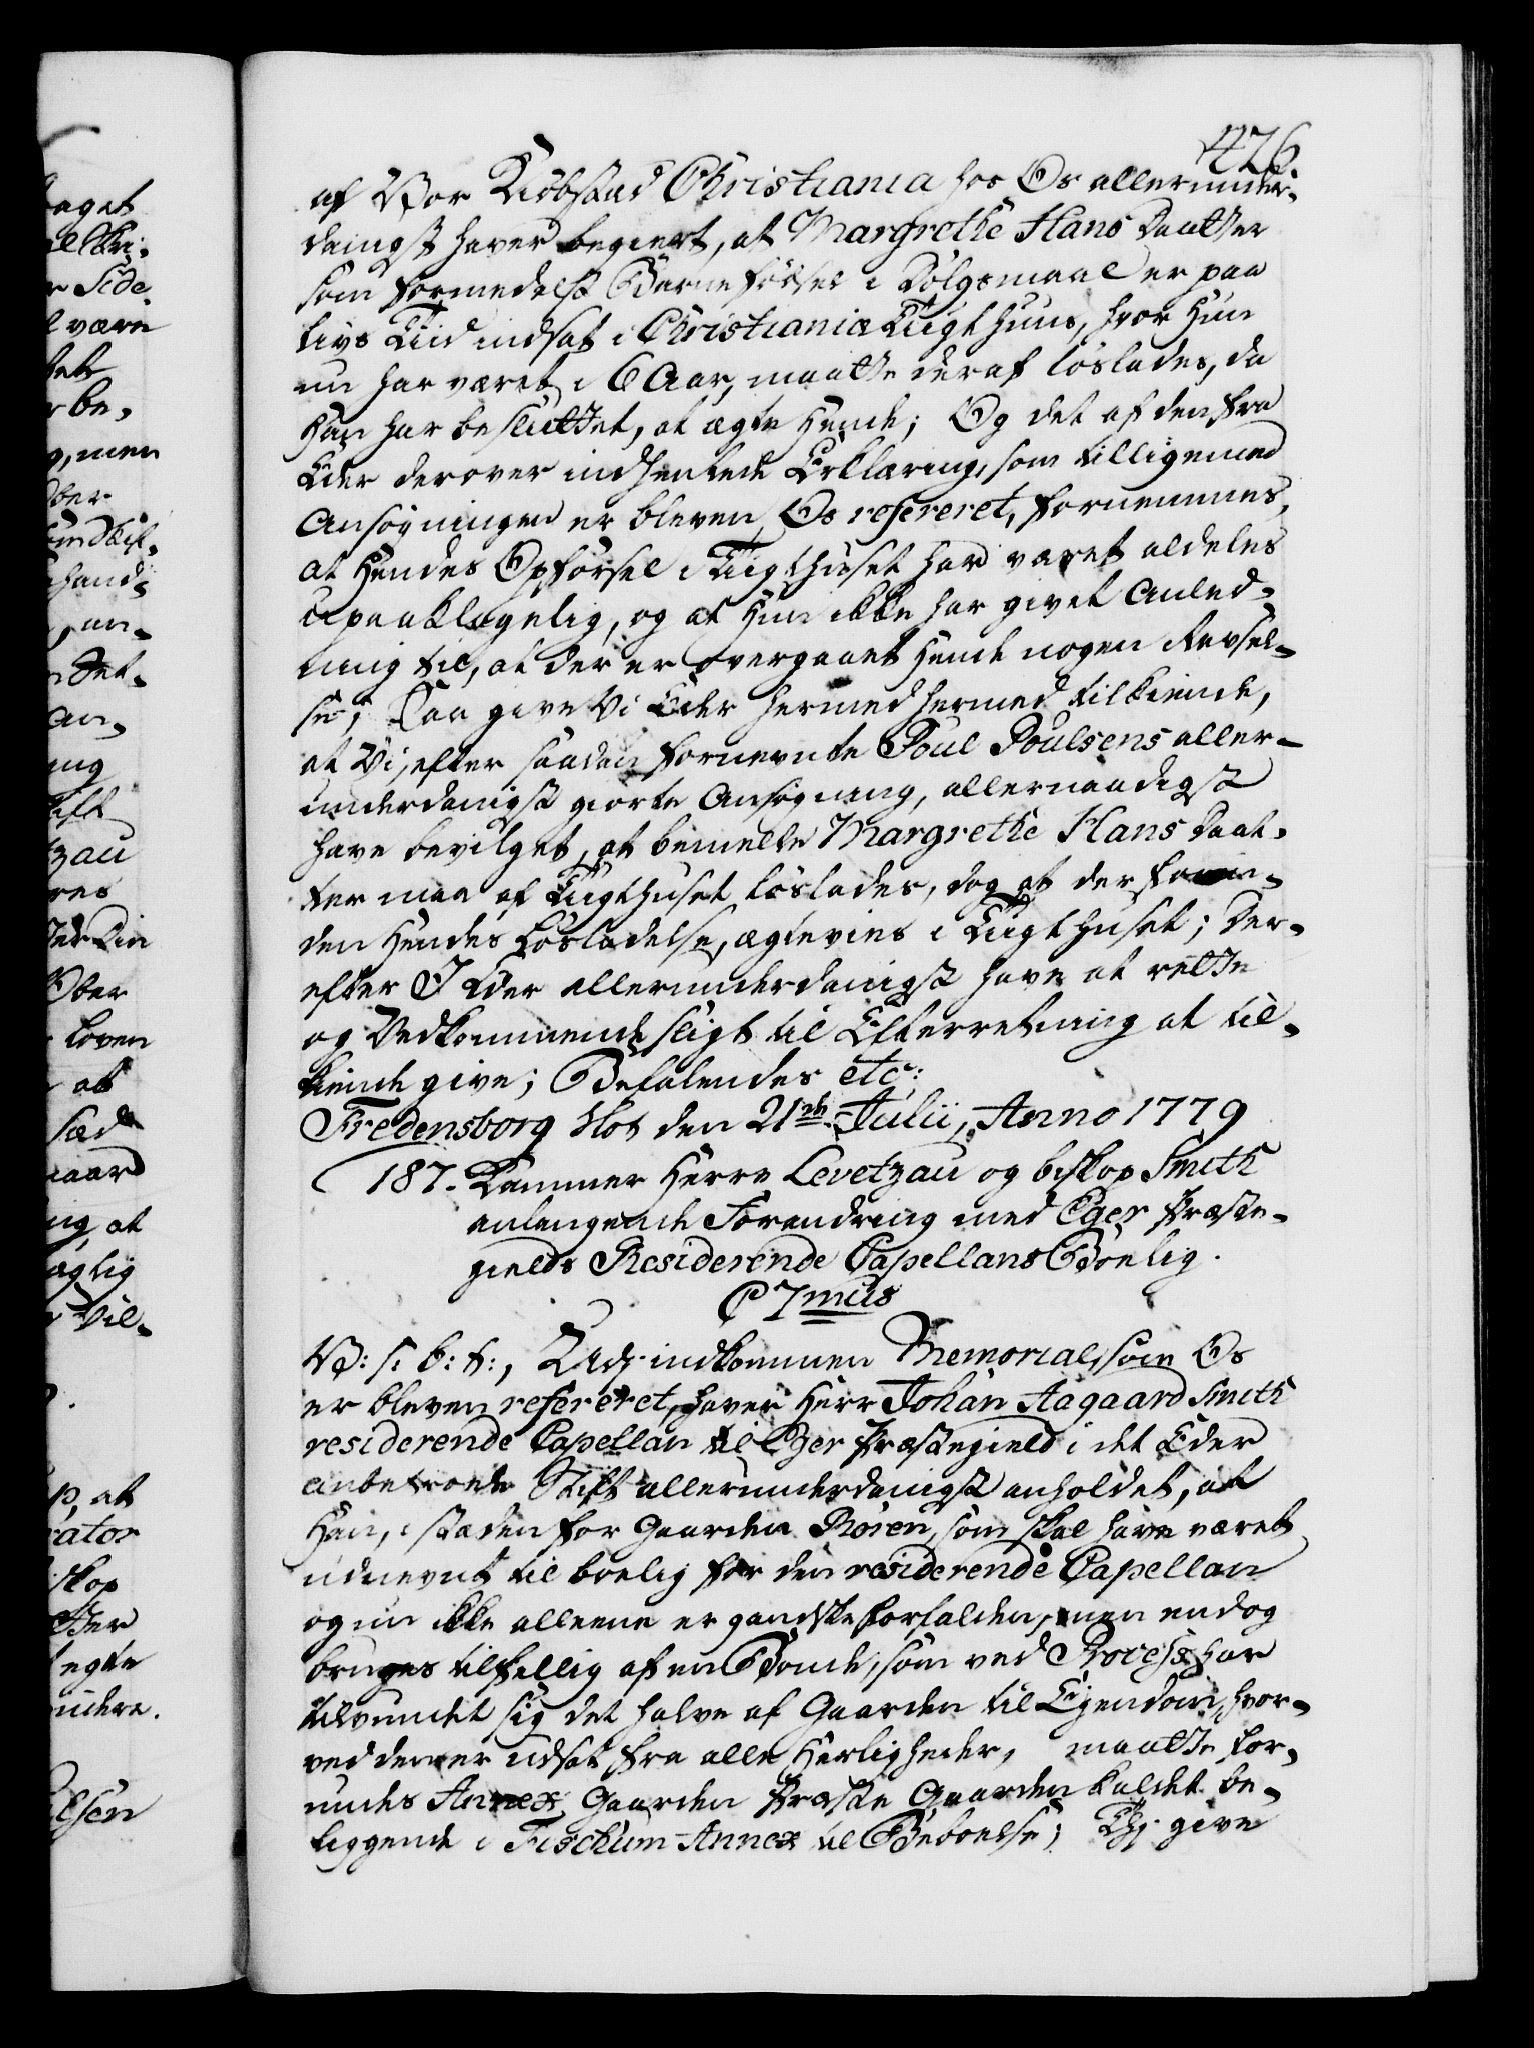 426.
af Vor Kiøbstad Christiania hos Os allerunder-
danigst haver begiert, at Margrethe Hans Daatter
som formedelst Barnefødsel i Dølgsmaal er paa
Livs Tiid indsat i Christianiæ Tugthuus, hvor Hun
nu har været i 6 Aar, maatte deraf løslades, da
Han har besluttet, at ægte Hende; Og det af den fra
Eder derover indhentede Erklæring, som tilligemed
Ansøgningen er bleven Os refereret, fornemmes,
at Hendes Opførsel i Tugthuset har været aldeles
upaaklagelig, og at Hun ikke har givet Anled-
ning til, at der er overgaaet Hende nogen Revsel-
se; Saa give Vi Eder hermed hermed tilkiende,
at Vi, efter saadan fornevnte Poul Poulsens aller-
underdanigst giorte Ansøgning, allernaadigst
have bevilget, at bemelte Margrethe Hans Daat-
ter maa af Tugthuset løslades, dog at de forin-
den Hendes Løsladelse, ægtevies i Tugthuset; Der-
efter I Eder allerunderdanigst have at rette
og Vedkommende sligt til Efterretning at til-
kiende give; Befalendes etc:
Fredensborg Slot den 21de Julii, Anno 1779
187. Kammer Herre Levetzau og biskop Smith
anlangende Forandring med Eger Præste-
gields Residerende Capellans Boelig.
C 7mus
V: s: b: t:, Udj indkommen Memorial, som Os
er bleven refereret, haver Herr Johan Aagaard Smith
residerende Capellan til Eger Præstegield i det Eder
anbetroede Stift allerunderdanigst anholdet, at
Han, i stæden for Gaarden Roren, som skal have været
udnevnt til boelig for den residerende Capellan
og nu ikke alleene er gandske forfalden, men endog
bruges tilfellig af en Bonde, som ved Process har
tilvundet sig det halve af Gaarden til Eyendom, hvor-
ved den er udsat fra alle Herligheder, maatte for-
undes Annex Gaarden Præste Gaarden kaldet be-
liggende i Fischum Annex til Beboelse; Thj give